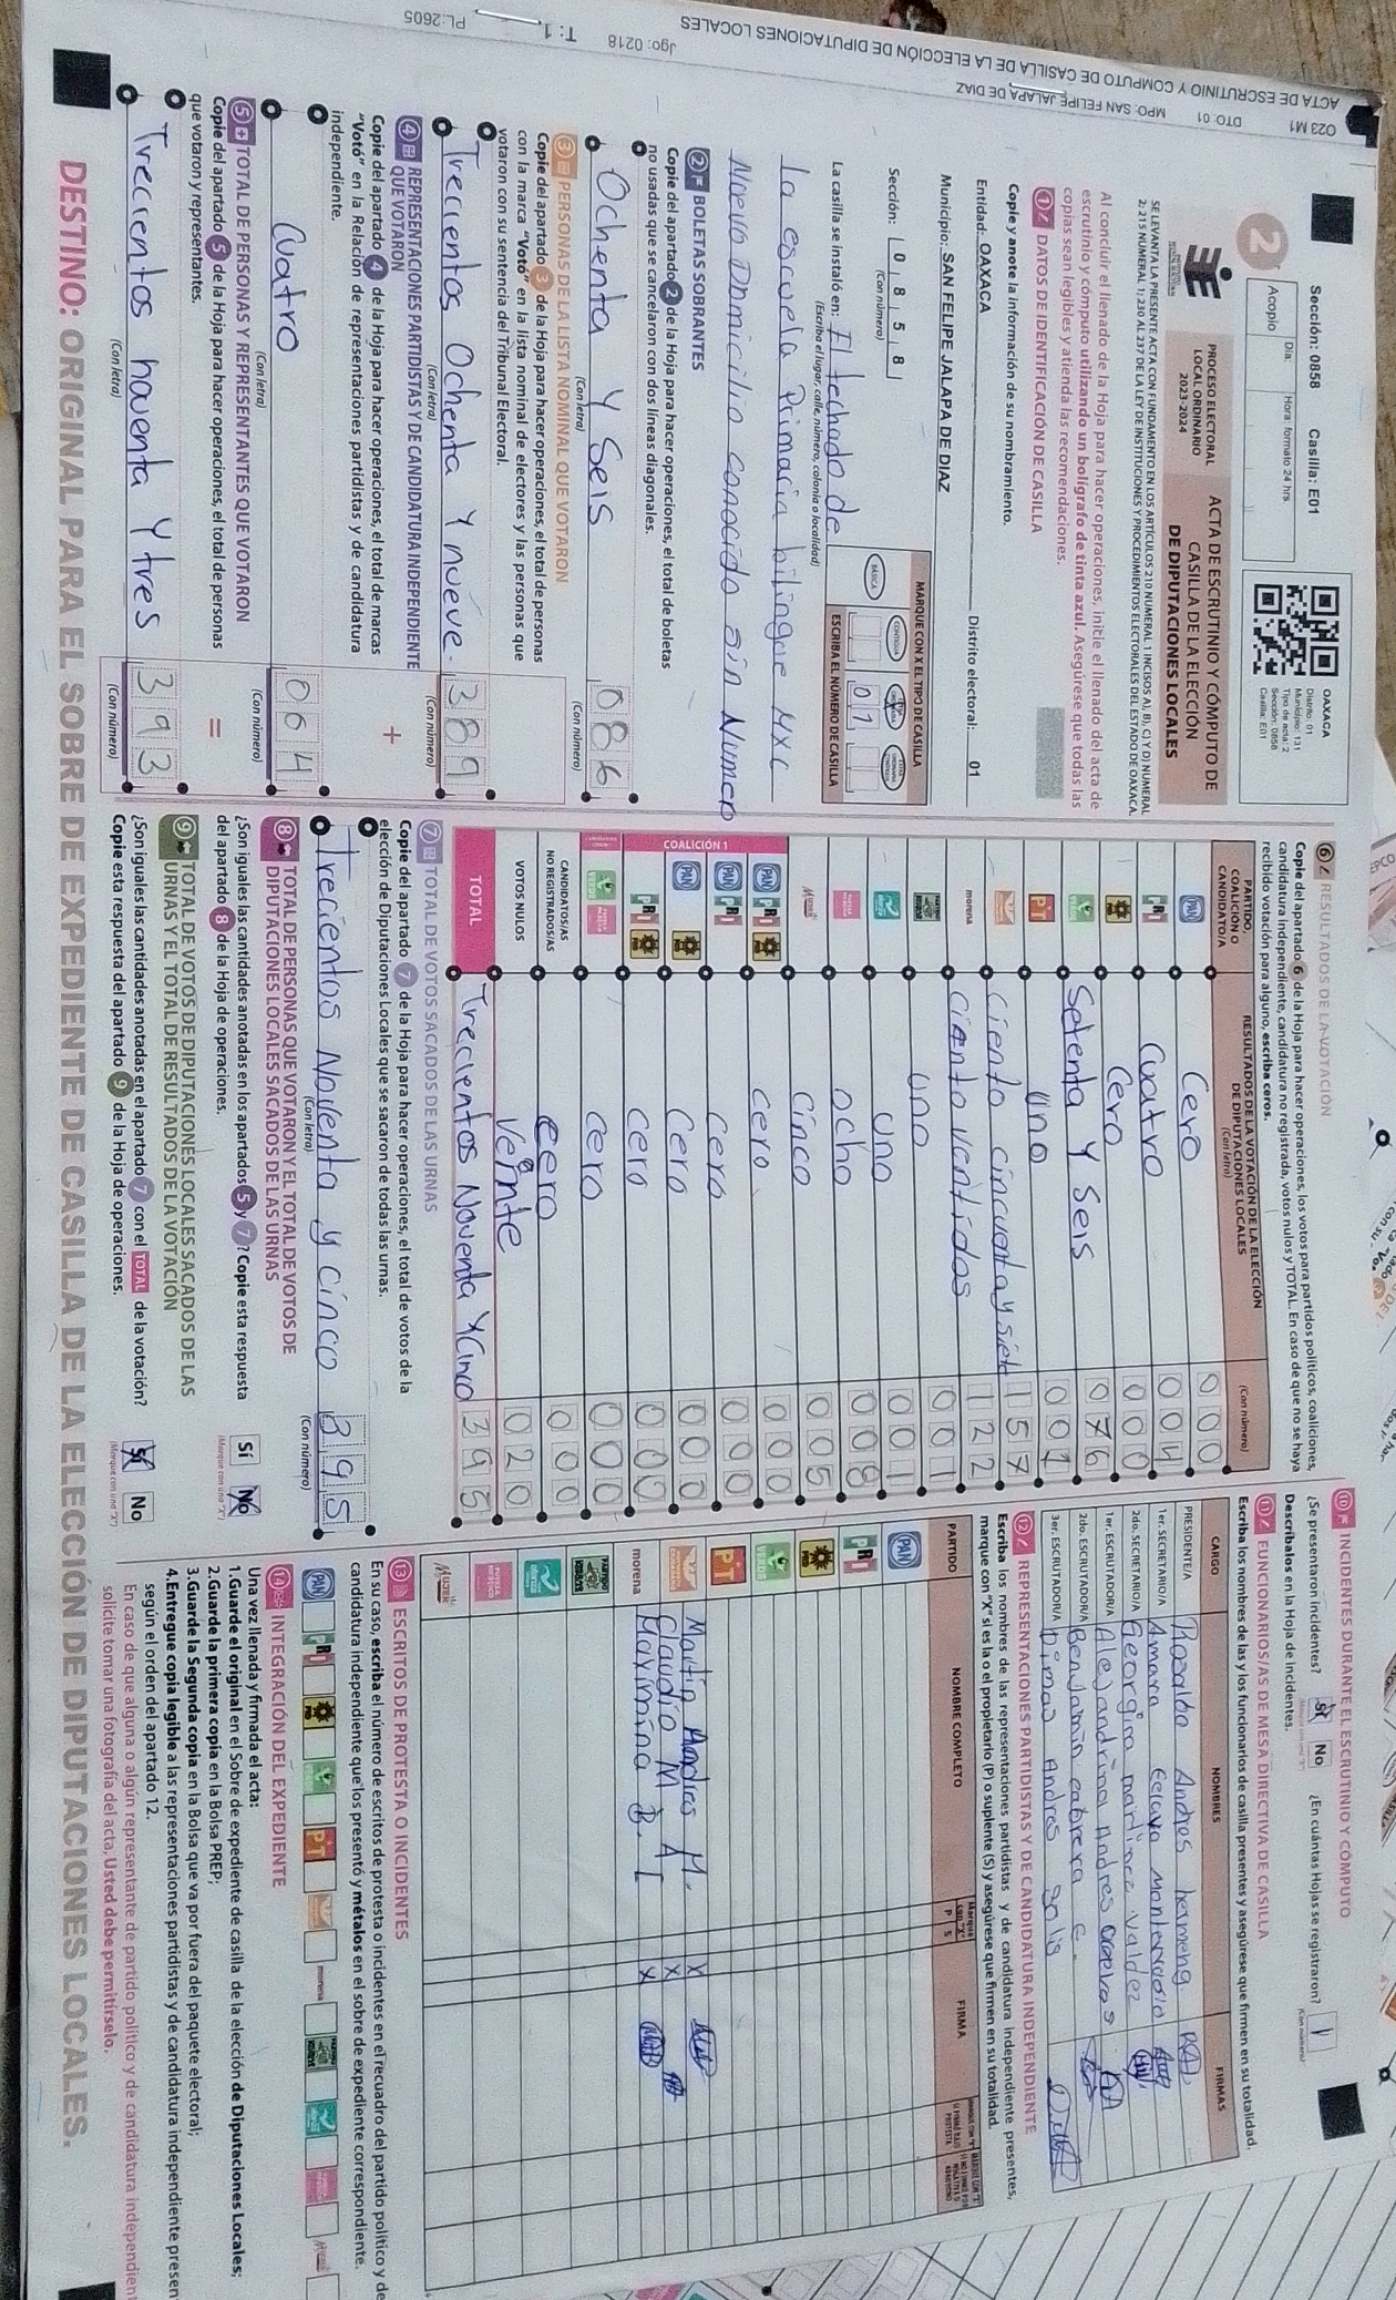 ACTA DE ESCRUTINIO Y CÓMPUTO DE CASILLA DE LA ELECCIÓN DE DIPUTACIONES LOCALES
023 M1
DTO: 01
MPO: SAN FELIPE JALAPA DE DIAZ
Jgo: 0218
T: 1
PL:2605
Sección: 0858 Casilla: E01
2
Día:
Hora: formato 24 hrs.
Acopio
OAXACA
Distrito: 01
Municipio: 131
Tipo de acta: 2
Sección: 0858
Casilla: E01
PROCESO ELECTORAL
LOCAL ORDINARIO
2023-2024
ACTA DE ESCRUTINIO Y CÓMPUTO DE
CASILLA DE LA ELECCIÓN
DE DIPUTACIONES LOCALES
SE LEVANTA LA PRESENTE ACTA CON FUNDAMENTO EN LOS ARTÍCULOS 210 NUMERAL 1 INCISOS A), B), C) Y D) NUMERAL
2; 215 NUMERAL 1; 230 AL 237 DE LA LEY DE INSTITUCIONES Y PROCEDIMIENTOS ELECTORALES DEL ESTADO DE OAXACA.
Al concluir el llenado de la Hoja para hacer operaciones, inicie el llenado del acta de
escrutinio y cómputo utilizando un bolígrafo de tinta azul. Asegúrese que todas las
copias sean legibles y atienda las recomendaciones.
1 DATOS DE IDENTIFICACIÓN DE CASILLA
Copie y anote la información de su nombramiento.
Entidad: OAXACA Distrito electoral: 01
Municipio: SAN FELIPE JALAPA DE DIAZ
Sección: 0 8 5 8
(Con número)
MARQUE CON X EL TIPO DE CASILLA
BÁSICA
CONTIGUA
0 1
ESCRIBA EL NÚMERO DE CASILLA
La casilla se instaló en: El techado de
(Escriba el lugar, calle, número, colonia o localidad)
la escuela Primaria bilingüe MXC
Nuevo Domicilio conocido sin Numero
2 BOLETAS SOBRANTES
Copie del apartado 2 de la Hoja para hacer operaciones, el total de boletas
no usadas que se cancelaron con dos líneas diagonales.
Ochenta Y Seis 086
(Con letra) (Con número)
3 PERSONAS DE LA LISTA NOMINAL QUE VOTARON
Copie del apartado 3 de la Hoja para hacer operaciones, el total de personas
con la marca "Votó" en la lista nominal de electores y las personas que
votaron con su sentencia del Tribunal Electoral.
Trecientos Ochenta Y nueve. 389
(Con letra) (Con número)
4 REPRESENTACIONES PARTIDISTAS Y DE CANDIDATURA INDEPENDIENTE
QUE VOTARON
Copie del apartado 4 de la Hoja para hacer operaciones, el total de marcas
"Votó" en la Relación de representaciones partidistas y de candidatura
independiente.
+
Cuatro 004
(Con letra) (Con número)
5 TOTAL DE PERSONAS Y REPRESENTANTES QUE VOTARON
Copie del apartado 5 de la Hoja para hacer operaciones, el total de personas
que votaron y representantes.
=
Trecientos noventa Y tres 393
(Con letra) (Con número)
6 RESULTADOS DE LA VOTACIÓN
Copie del apartado 6 de la Hoja para hacer operaciones, los votos para partidos políticos, coaliciones,
candidatura independiente, candidatura no registrada, votos nulos y TOTAL. En caso de que no se haya
recibido votación para alguno, escriba ceros.
PARTIDO,
COALICIÓN O
CANDIDATO/A
RESULTADOS DE LA VOTACIÓN DE LA ELECCIÓN
DE DIPUTACIONES LOCALES
(Con letra)
(Con número)
PAN Cero 000
PRI Cuatro 004
PRD Cero 000
VERDE Setenta Y Seis 076
PT Uno 001
Ciento cincuenta y siete 157
morena Ciento veintidos 122
uno 001
uno 001
ocho 008
MUJER cinco 005
COALICIÓN 1
PAN PRI PRD cero 000
PAN PRI cero 000
PAN PRD Cero 000
PRI PRD Cero 000
VERDE Cero 000
CANDIDATOS/AS
NO REGISTRADOS/AS cero 000
VOTOS NULOS Veinte 020
TOTAL Trecientos Noventa Y Cinco 395
7 TOTAL DE VOTOS SACADOS DE LAS URNAS
Copie del apartado 7 de la Hoja para hacer operaciones, el total de votos de la
elección de Diputaciones Locales que se sacaron de todas las urnas.
Trecientos Noventa y cinco 395
(Con letra) (Con número)
8 TOTAL DE PERSONAS QUE VOTARON Y EL TOTAL DE VOTOS DE
DIPUTACIONES LOCALES SACADOS DE LAS URNAS
¿Son iguales las cantidades anotadas en los apartados 5 y 7? Copie esta respuesta
del apartado 8 de la Hoja de operaciones.
Sí No
(Marque con una "X")
9 TOTAL DE VOTOS DE DIPUTACIONES LOCALES SACADOS DE LAS
URNAS Y EL TOTAL DE RESULTADOS DE LA VOTACIÓN
¿Son iguales las cantidades anotadas en el apartado 7 con el TOTAL de la votación?
Copie esta respuesta del apartado 9 de la Hoja de operaciones.
Sí No
(Marque con una "X")
10 INCIDENTES DURANTE EL ESCRUTINIO Y CÓMPUTO
¿Se presentaron incidentes? Sí No ¿En cuántas Hojas se registraron? 1
(Con número)
Descríbalos en la Hoja de Incidentes.
11 FUNCIONARIOS/AS DE MESA DIRECTIVA DE CASILLA
Escriba los nombres de las y los funcionarios de casilla presentes y asegúrese que firmen en su totalidad.
CARGO NOMBRES FIRMAS
PRESIDENTE/A Rosalba Andres
1er. SECRETARIO/A Amara
2do. SECRETARIO/A Georgina valdez
1er. ESCRUTADOR/A Alejandrina Andres
2do. ESCRUTADOR/A Benjamin cabrera c.
3er. ESCRUTADOR/A Dimas Andres Solis
12 REPRESENTACIONES PARTIDISTAS Y DE CANDIDATURA INDEPENDIENTE
Escriba los nombres de las representaciones partidistas y de candidatura independiente presentes,
marque con "X" si es la o el propietario (P) o suplente (S) y asegúrese que firmen en su totalidad.
PARTIDO NOMBRE COMPLETO P S FIRMA
PAN
PRI
PRD
VERDE
PT
Martin Andres M. X
Claudio M A X
morena Maximina B. I X
MUJER
13 ESCRITOS DE PROTESTA O INCIDENTES
En su caso, escriba el número de escritos de protesta o incidentes en el recuadro del partido político y de
candidatura independiente que los presentó y métalos en el sobre de expediente correspondiente.
PAN PRI PRD VERDE PT morena MUJER
14 INTEGRACIÓN DEL EXPEDIENTE
Una vez llenada y firmada el acta:
1.Guarde el original en el Sobre de expediente de casilla de la elección de Diputaciones Locales;
2.Guarde la primera copia en la Bolsa PREP;
3.Guarde la Segunda copia en la Bolsa que va por fuera del paquete electoral;
4.Entregue copia legible a las representaciones partidistas y de candidatura independiente presen
según el orden del apartado 12.
En caso de que alguna o algún representante de partido político y de candidatura independien
solicite tomar una fotografía del acta, Usted debe permitírselo.
DESTINO: ORIGINAL PARA EL SOBRE DE EXPEDIENTE DE CASILLA DE LA ELECCIÓN DE DIPUTACIONES LOCALES.